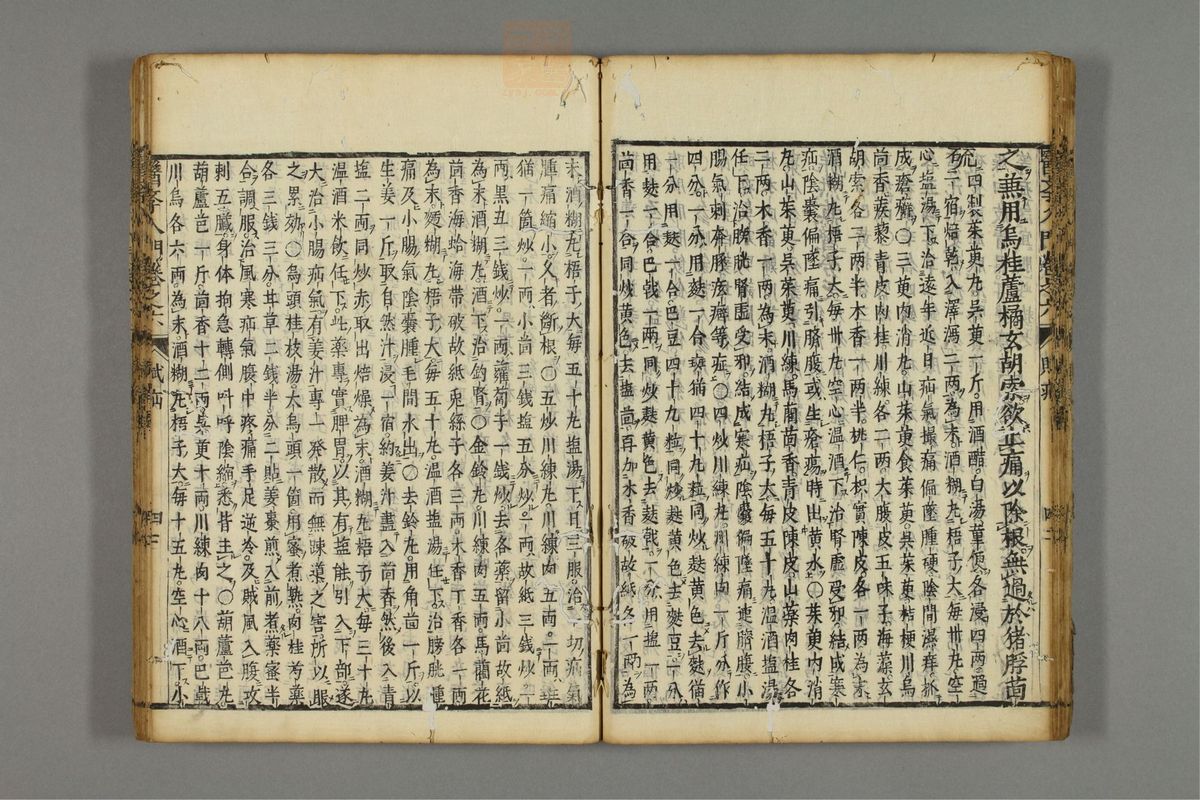 之兼用烏桂蘆橘玄胡索欲止痛以除根無過於猪脬茴
疝四製茱萸丸吳萸一斤用酒醋白湯童便各浸四兩過
一宿焙乾入澤瀉二兩為末酒糊丸梧子大每卅丸空
心塩湯下治遠年近日疝氣撮痛偏墜腫硬陰間濕痒抓
成瘡癬〇三萸內消丸山茱萸食茱萸吳茱萸桔梗川烏
茴香蒺藜青皮肉桂川練各二兩大腹皮五味子海藻玄
胡索各二兩半木香一兩半桃仁枳實陳皮各一兩為末
酒糊丸梧子大每卅丸空心温酒下治腎虛受邪結成寒
疝陰囊偏墜痛引臍腹或生瘡瘍時出黄水〇茱萸內消
丸山茱萸吳茱萸川練馬藺茴香青皮陳皮山藥肉桂各
二兩木香一兩為末酒糊丸梧子大每五十丸温酒塩湯
任下治膀胱腎虛受邪結成寒疝陰囊偏墜痛連臍腹小
腸氣刺奔豚痃癖等症〇四炒川練丸川練肉一斤分作
四分一分用麩一合斑猫四十九粒同炒麩黄色去麩猫
一分用麩一合巴豆四十九粒同炒麩黄色去麩豆一分
用麩一合巴戟一兩同炒麩黄色去麩戟一分用塩一兩
茴香一合同炒黄色去塩茴再加木香破故紙各一兩為
末酒糊丸梧子大每五十丸塩湯下日三服治一切疝氣
腫痛縮小久者斷根〇五炒川練丸川練肉五兩二兩斑
猫一箇炒一兩小茴三錢塩五分炒一兩故紙三錢炒一
兩黑丑三錢炒一兩蘿蔔子一錢炒去各藥留小茴故紙
為末酒糊丸酒下治釣腎〇金鈴丸川練肉五兩馬藺花
茴香海蛤海帶破故紙兔絲子各三兩木香丁香各一兩
為末麪糊丸梧子大每五十丸温酒塩湯任下治膀胱腫
痛及小腸氣陰囊腫毛間水出〇去鈴丸用角茴一斤以
生姜一斤取自然汁浸一宿約姜汁盡入茴香然後入青
塩二兩同炒赤取出焙燥為末酒糊丸梧子大每三十丸
温酒米飲任下此藥專實脾胃以其有塩能引入下部遂
大治小腸疝氣有姜汁專一發散而無疎導之害所以服
之累効〇烏頭桂枝湯大烏頭一箇用蜜煮熟肉桂芍藥
各三錢三分甘草二錢半分二貼姜棗煎入前煮藥蜜半
合調服治風寒疝氣腹中疼痛手足逆冷及賊風入腹攻
刺五臟身体拘急轉側呌呼陰縮悉皆主之〇葫蘆芭丸
葫蘆芭一斤茴香十二兩吳萸十兩川練肉十八兩巴戟
川烏各六兩為末酒糊丸梧子大每十五丸空心酒下小